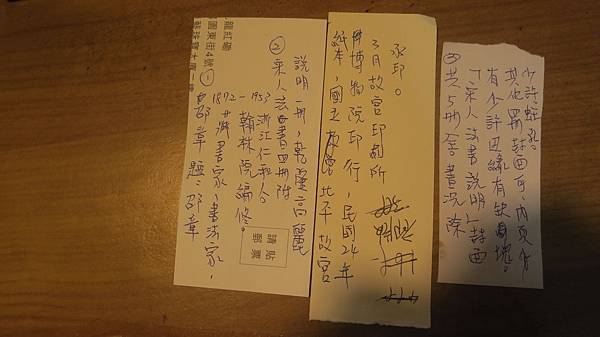 園東街4號
① 邵章題：邵章
藏書家、書法家，
1872-1953 浙江仁和人
翰林院編修。
② 宋人法書四冊附
說明一冊，乾隆高麗
請貼
郵票
紙本，國立北平故宮
博物院印行，民國24年
3月故宮印刷所
承印。
③ 共5冊全書況除
「宋人法書說明」封面
有少許邊緣有缺塊。
其他冊封面可，內頁有
少許蛀孔。